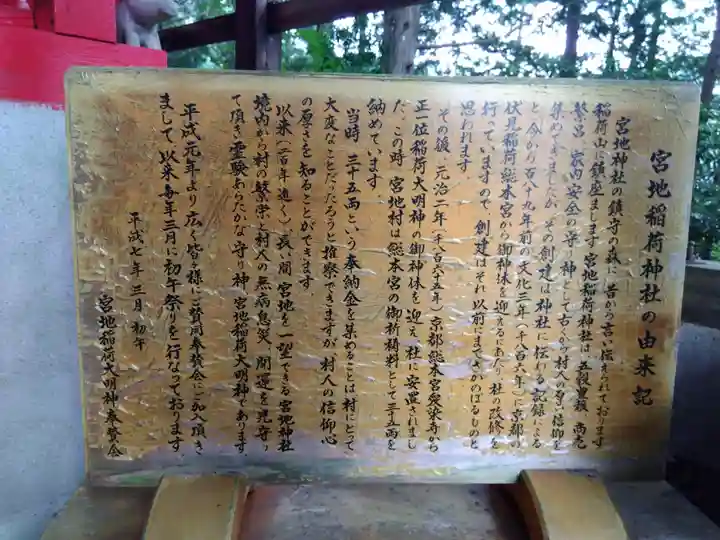 宮地稲荷神社の由来記
宮地神社の鎮守の森に昔から言い伝えられております
稲荷山に鎮座まします宮地稲荷神社は、五穀豊穣、商売
繁昌、家内安全の守り神として古くから村人の尊い信仰を
集めて来ましたが、その創建は神社に伝わる記録による
と、今から百八十九年前の文化三年(千八百六年)に京都の
伏見稲荷総本宮から御神体を迎えるにあたり、社の改修を
行なっていますので、創建はそれ以前にまでさかのぼるものと
思われます。
その後、元治二年(千八百六十五年)京都総本宮愛染寺から
正一位稲荷大明神の御神体を迎え、社に安置されまし
た。この時、宮地村は総本宮の御祈祷料として三十五両を
納めています。
当時、三十五両という奉納金を集めることは村にとって
大変なことだったろうと推察できますが、村人の信仰心
の厚さを知ることができます。
以来(二百年近く)、長い間、宮地を一望できる宮地神社
境内から村の繁栄と村人の無病息災、開運を見守っ
て頂き霊験あらたかな守り神、宮地稲荷大明神であります。
平成元年より広く皆々様のご賛同奉賛会にご加入頂き
まして、以来毎年三月に初午祭りを行なっております。
平成七年三月初午
宮地稲荷大明神奉賛会